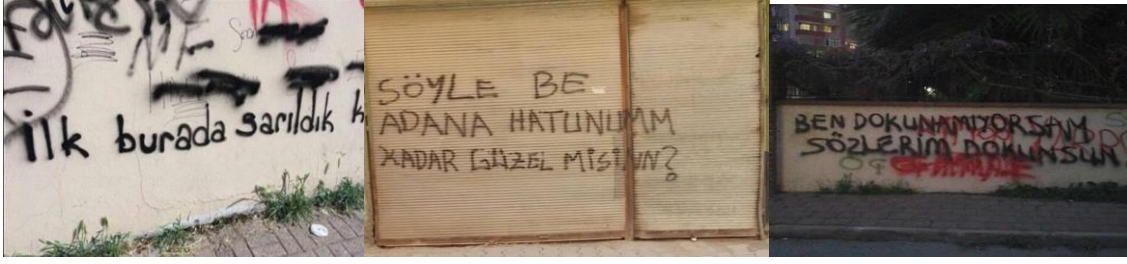 ilk burada sarıldık
SÖYLE BE
ADANA HATUNUMM
KADAR GÜZEL MİSİNN?
BEN DOKUNAMIYORSAM
SÖZLERİM DOKUNSUN